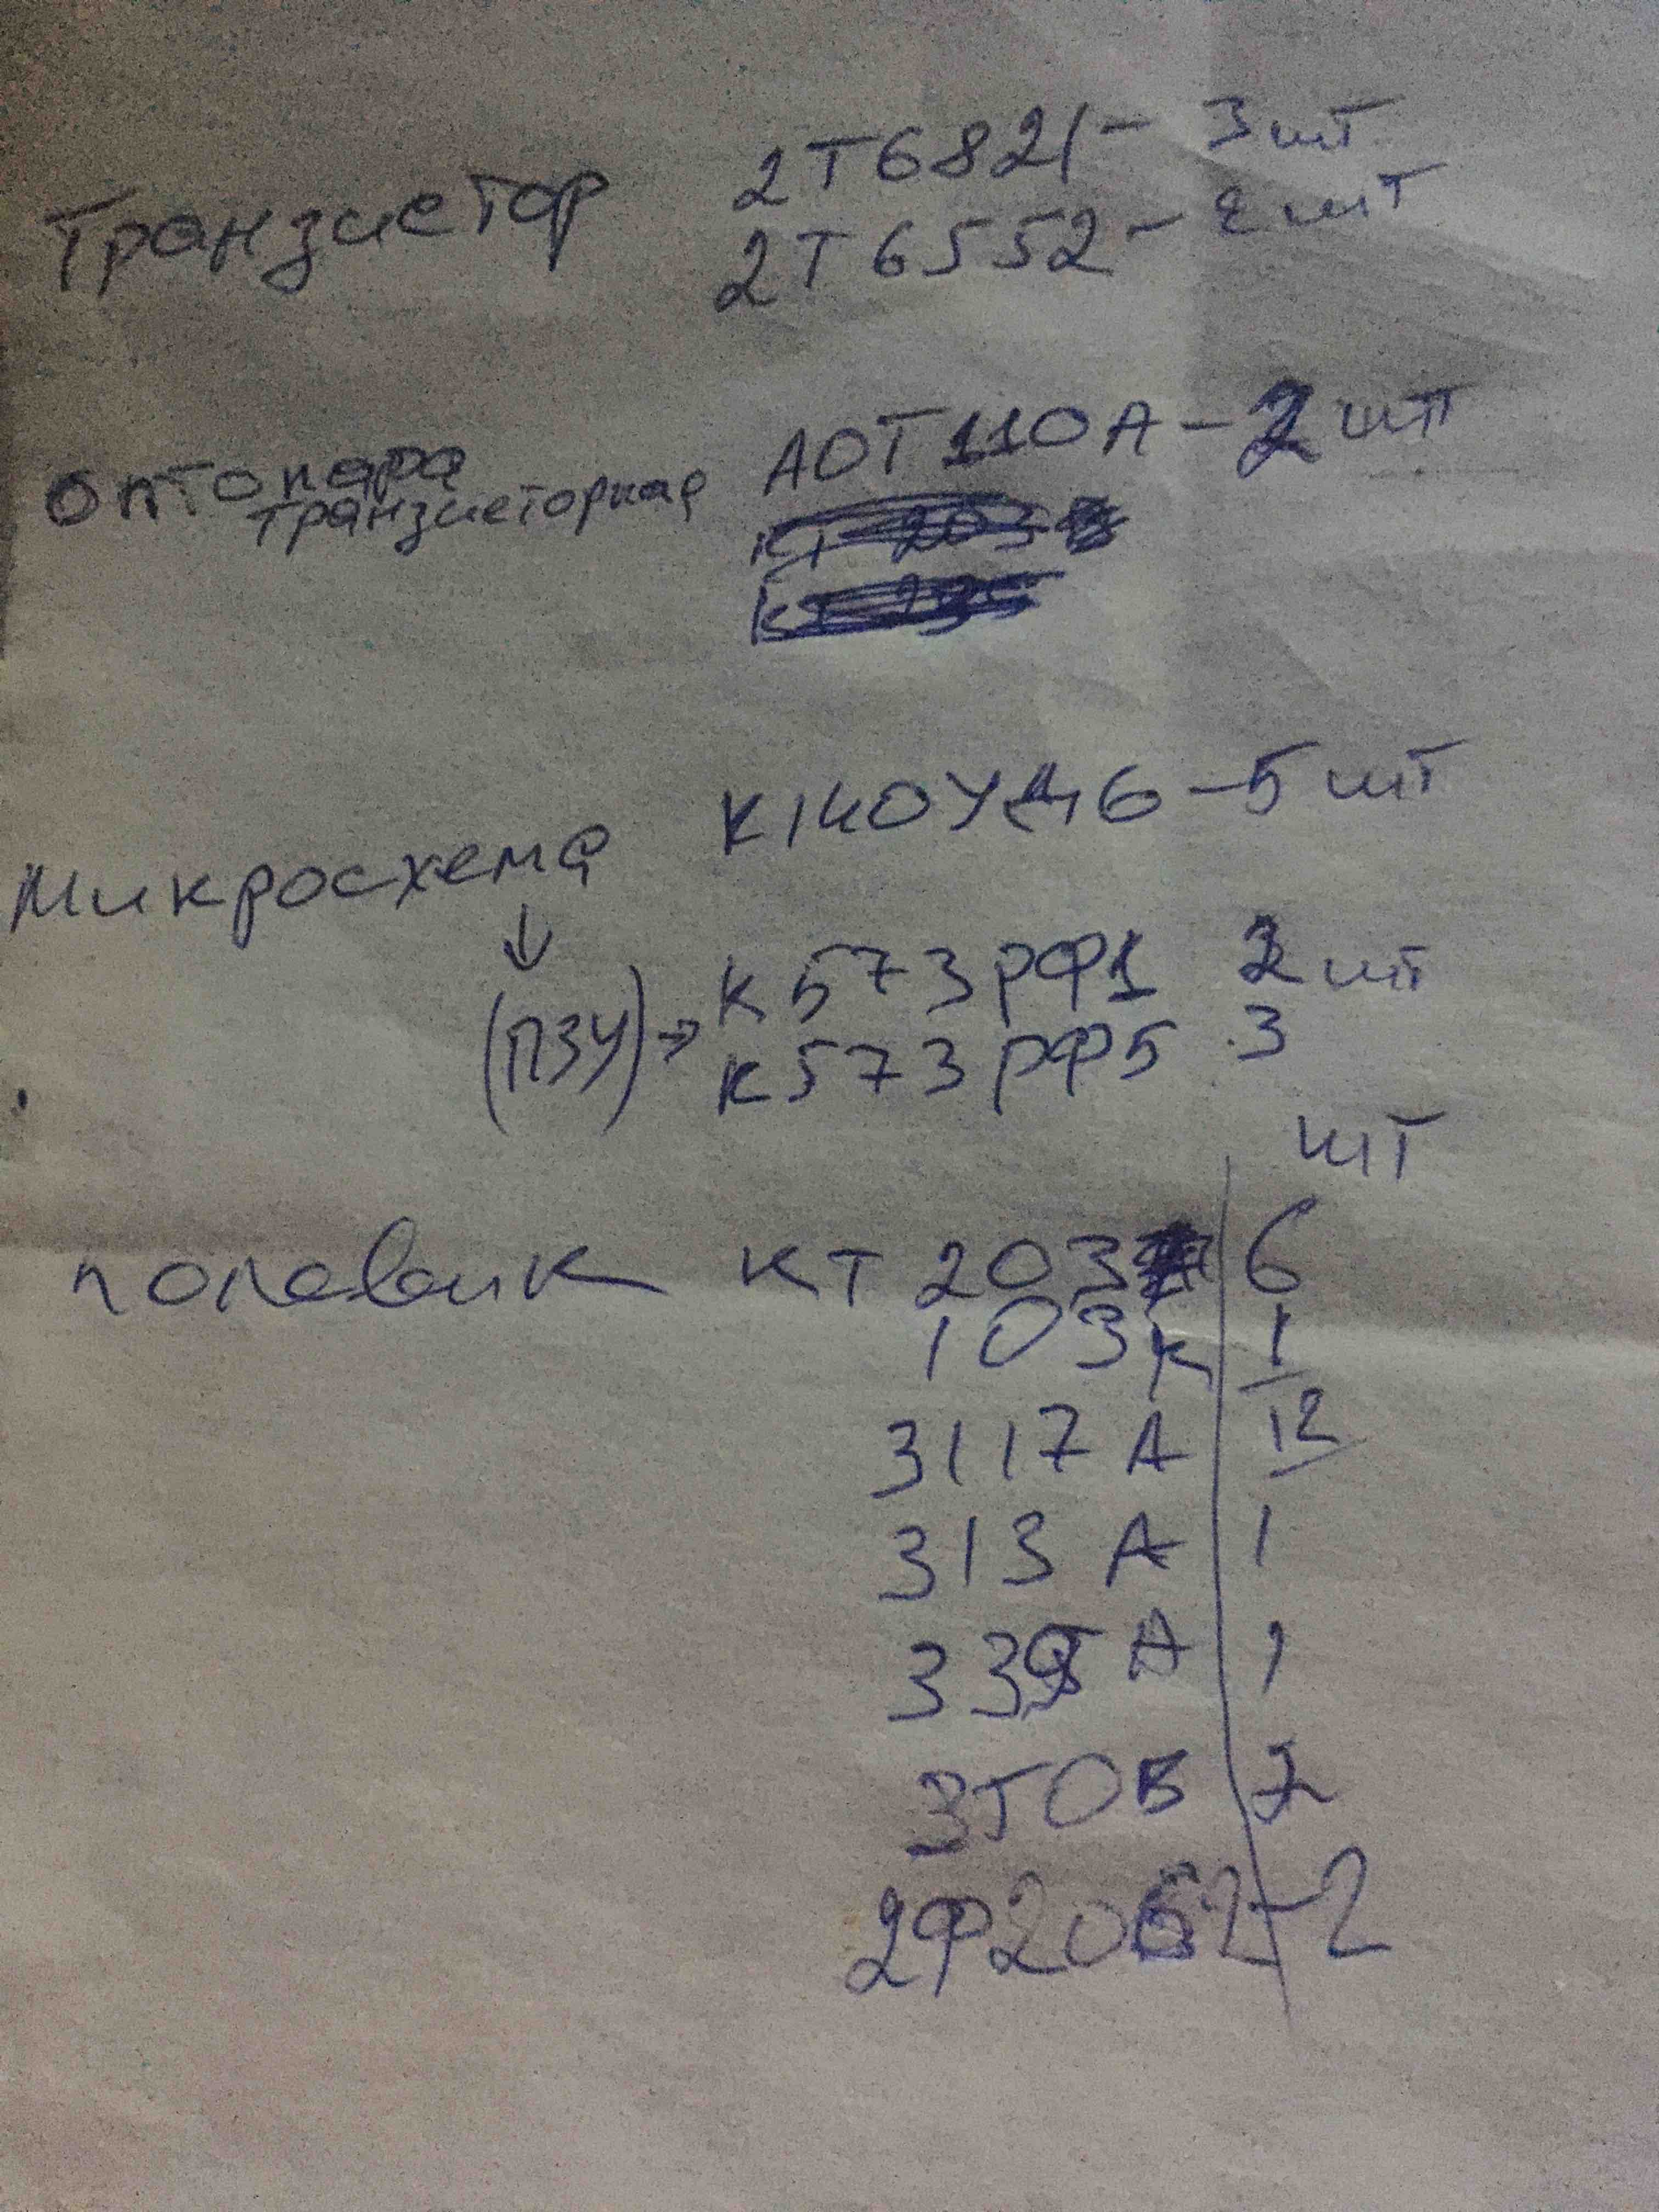 Транзистор 2Т6821 - 3 шт
2Т6552 - 2 шт
Оптопара АОТ110А - 2 шт
транзисторная
Микросхема К140УД6 - 5 шт
↓
(ПЗУ) → К573РФ1 2 шт
К573РФ5 3
шт
полевик КТ 203 6
103к 1
3117 А 12
313 А 1
339 А 1
350В 2
2Ф20 2 - 2